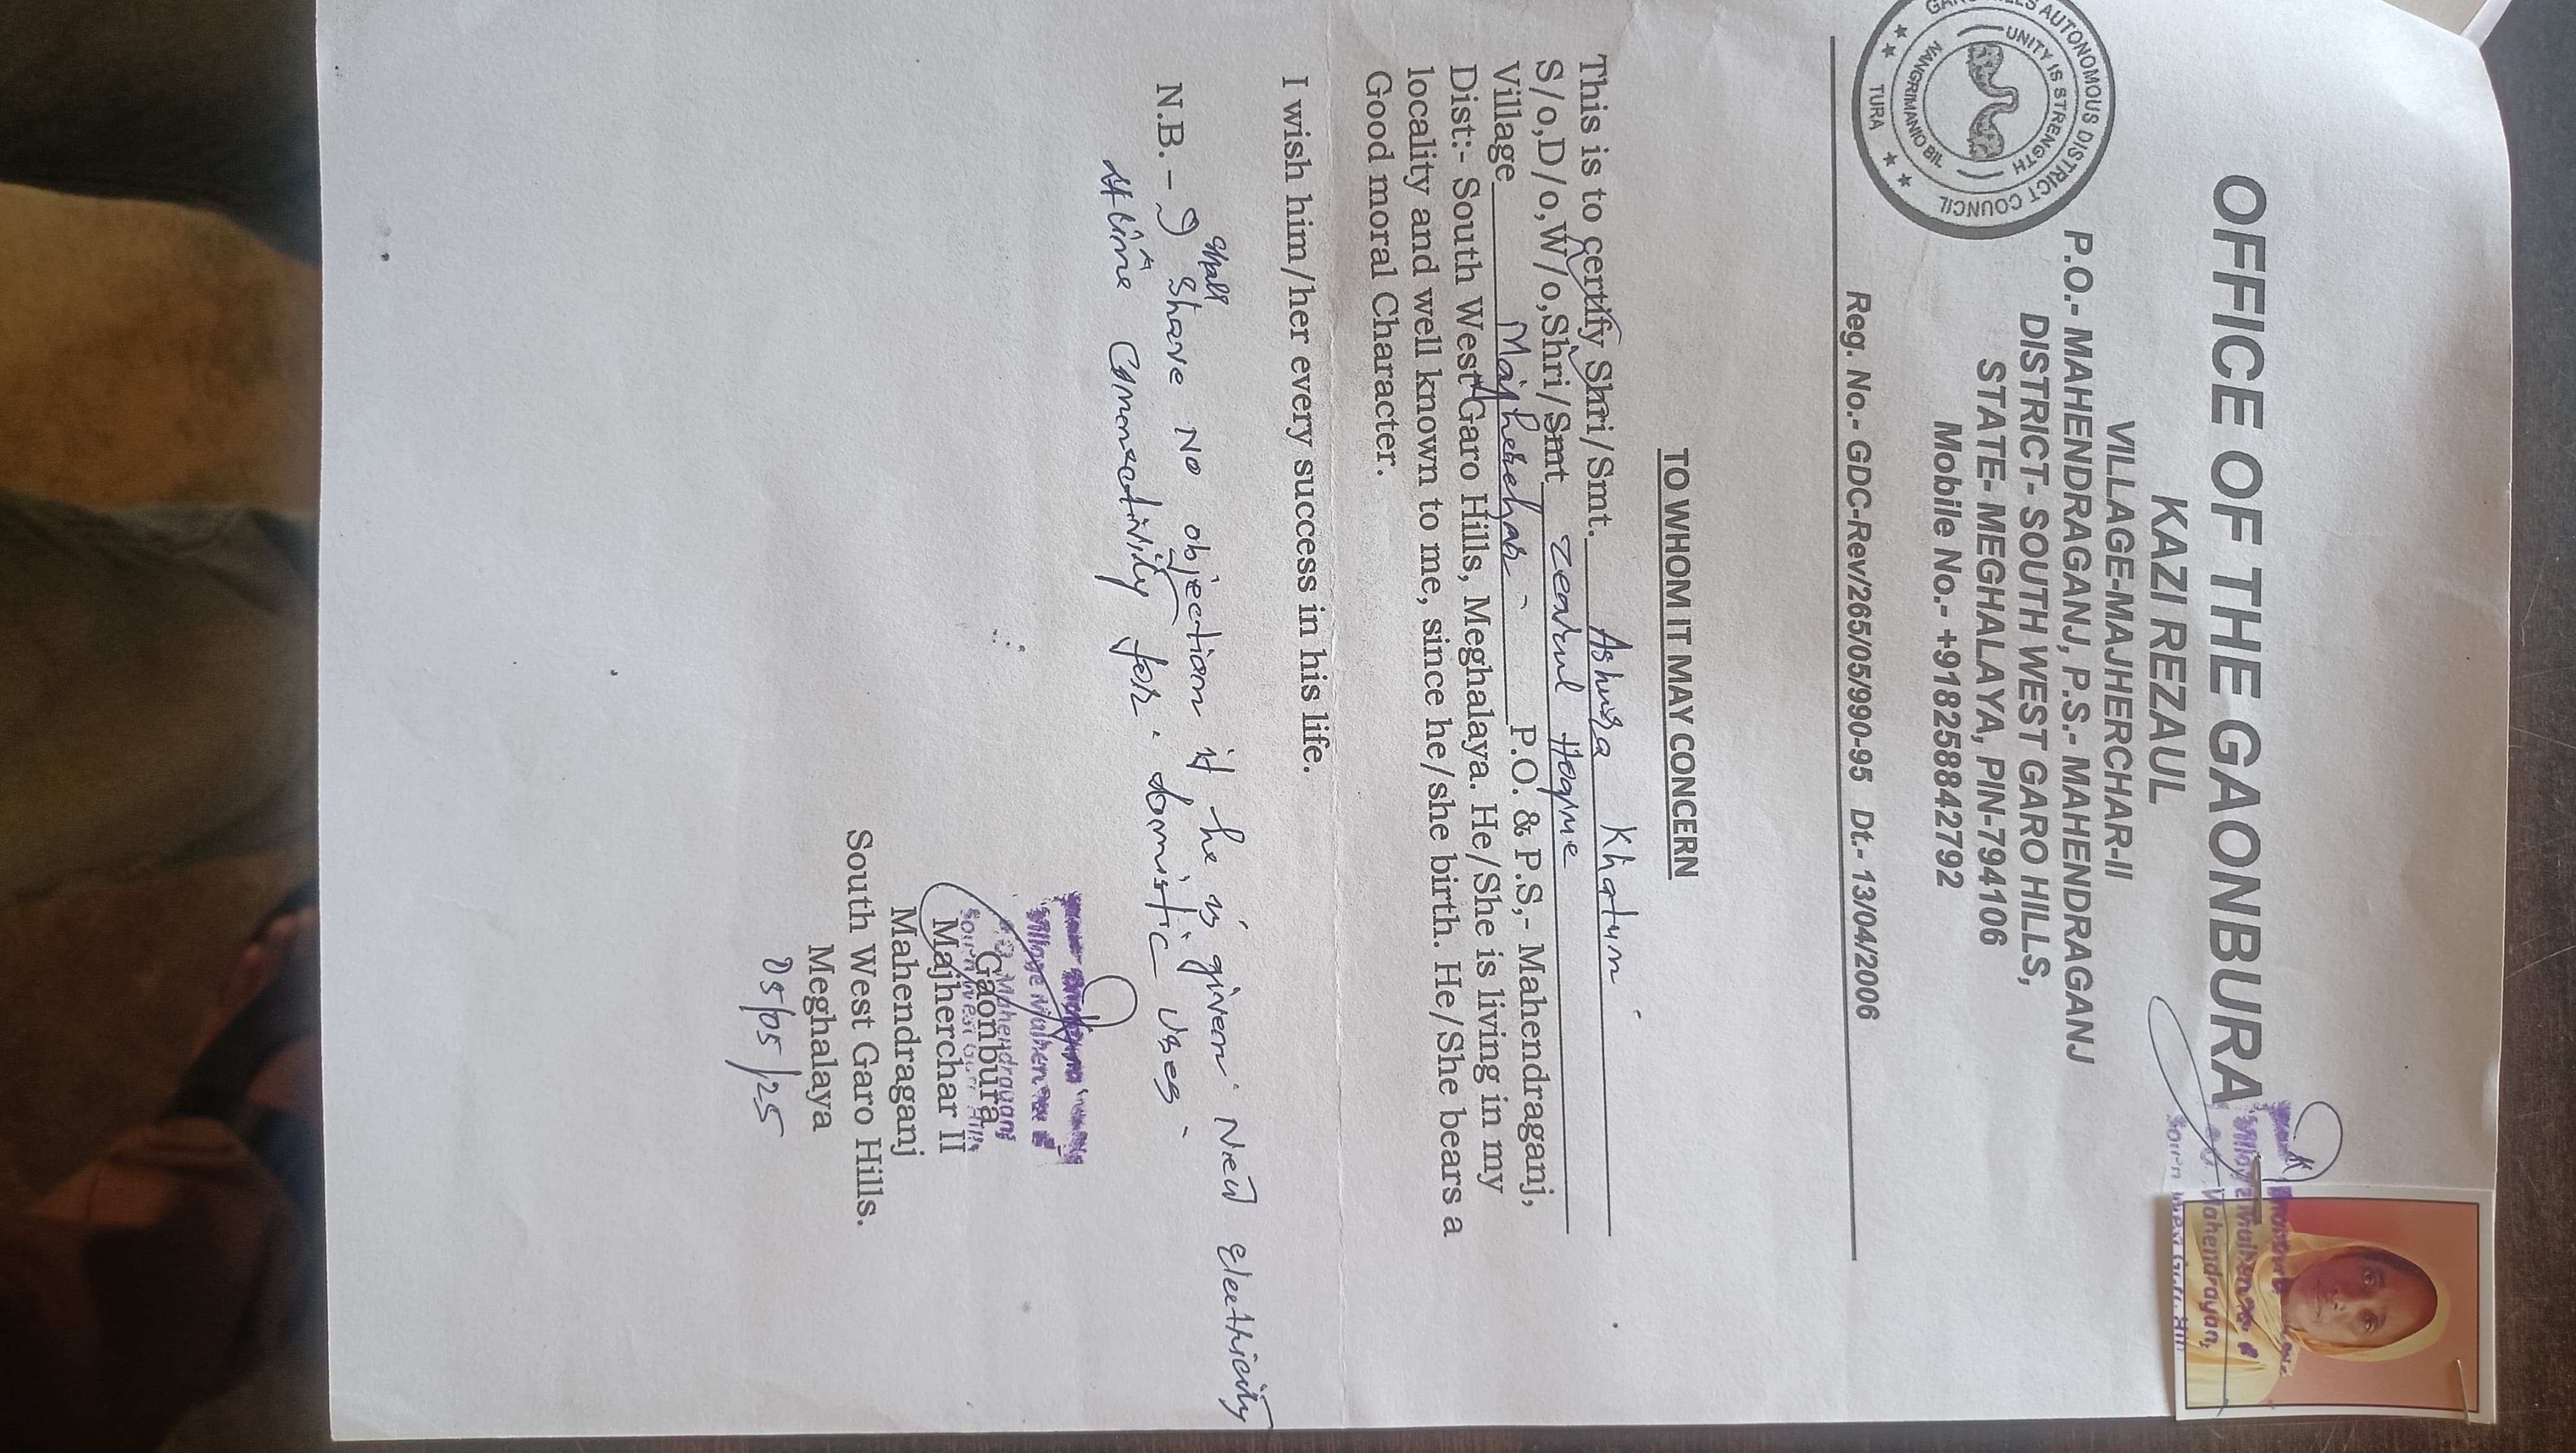 GARO HILLS AUTONOMOUS DISTRICT COUNCIL
UNITY IS STRENGTH
NANGRIMANIO BIL
TURA
OFFICE OF THE GAONBURA
KAZI REZAUL
VILLAGE-MAJHERCHAR-II
P.O.- MAHENDRAGANJ, P.S.- MAHENDRAGANJ
DISTRICT- SOUTH WEST GARO HILLS,
STATE- MEGHALAYA, PIN-794106
Mobile No.- +918258842792
Reg. No.- GDC-Rev/265/05/990-95 Dt.- 13/04/2006
TO WHOM IT MAY CONCERN
This is to certify Shri/Smt. Ashura Khatun
S/o,D/o,W/o,Shri/Smt Hoque
Village Majherchar P.O. & P.S,- Mahendraganj,
Dist:- South West Garo Hills, Meghalaya. He/She is living in my
locality and well known to me, since he/she birth. He/She bears a
Good moral Character.
I wish him/her every success in his life.
shall
N.B. - I Share No objection if he is given New electricity
line Connectivity for domistic uses
Gaonbura
Majherchar II
Mahendraganj
South West Garo Hills.
Meghalaya
05/05/25